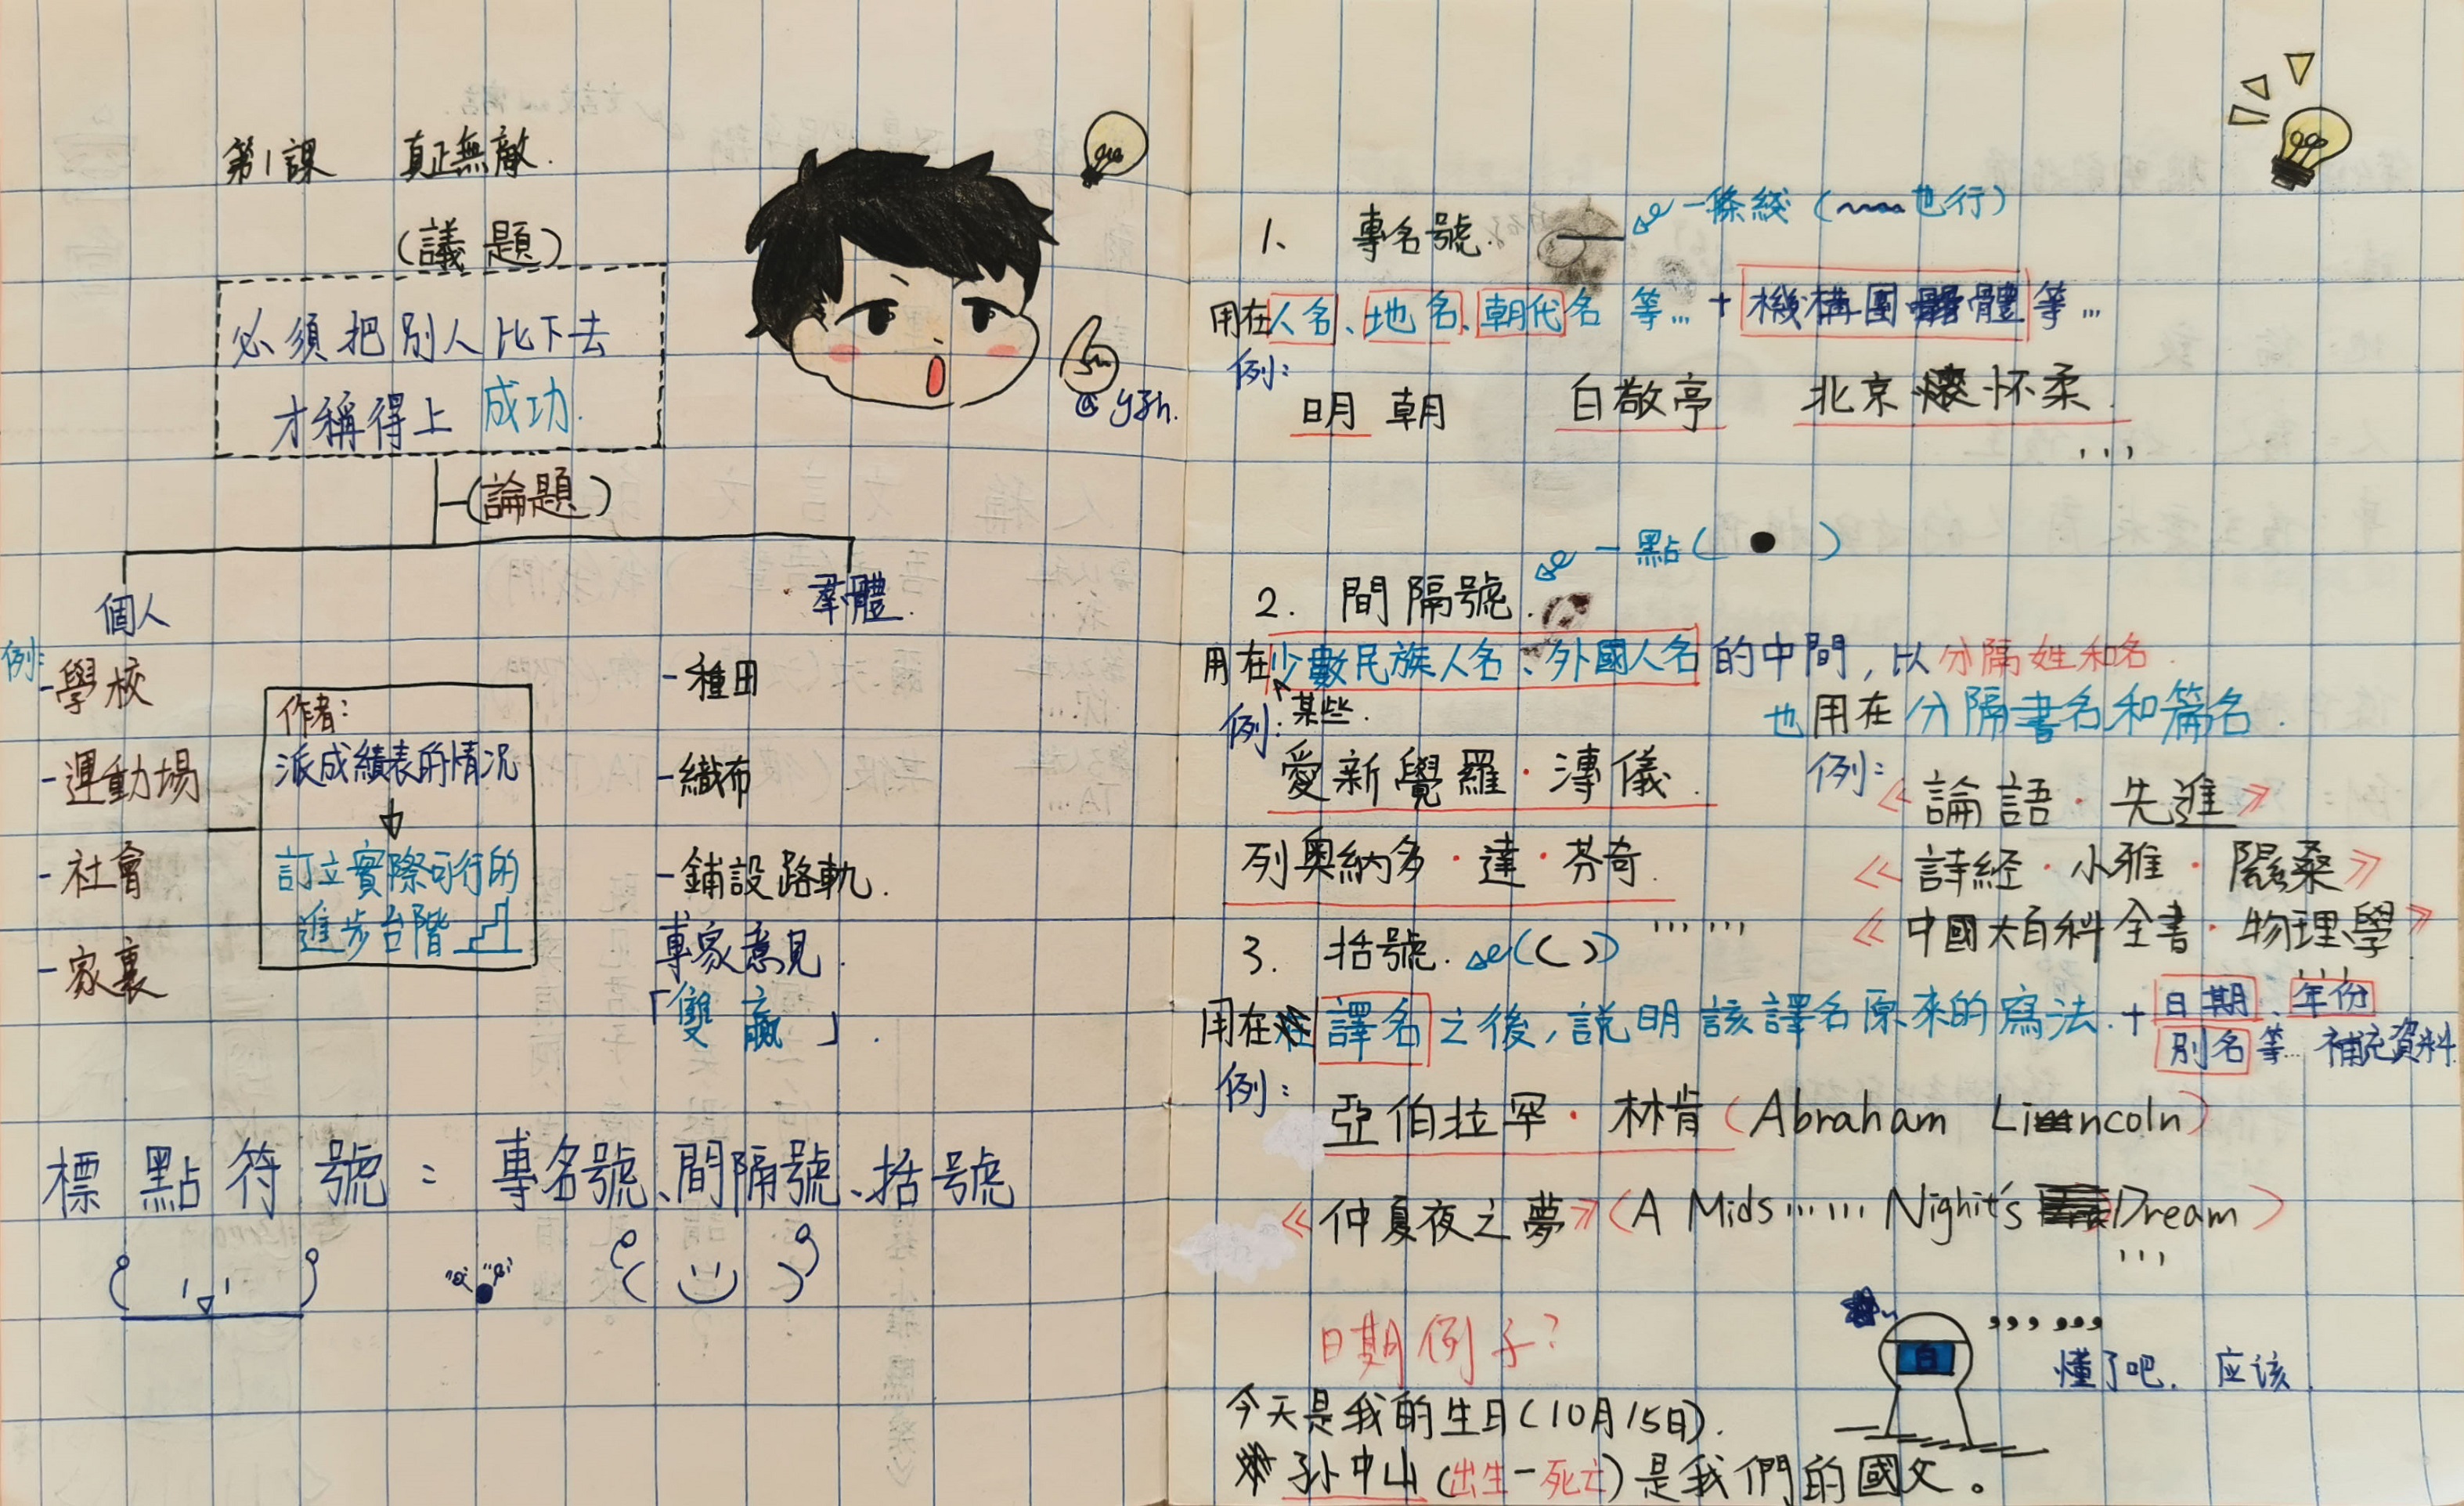 第1課 真正無敵.
(議題)
必須把別人比下去
才稱得上 成功.
(論題)
@ yzh.
個人
羣體.
例:
-學校
-運動場
-社會
-家裏
作者:
派成績表的情況
↓
訂立實際可行的
進步台階
-種田
-織布
-鋪設路軌.
專家意見.
「雙贏」.
標點符號: 專名號、間隔號、括號
1、 專名號. 一條綫(﹏﹏也行)
用在人名、地名、朝代名等… + 機構團體等…
例:
明朝 白敬亭 北京怀柔.
...
2. 間隔號. 一點( ● )
用在少數民族人名、外國人名的中間, 以分隔姓和名.
某些.
也用在分隔書名和篇名.
例:
愛新覺羅·溥儀.
列奧納多·達·芬奇.
......
例:
《論語·先進》
《詩経·小雅·隰桑》
《中國大百科全書·物理學》
...
3. 括號. (( ))
用在譯名之後, 説明該譯名原來的寫法. + 日期、年份
別名等… 補充資料
例:
亞伯拉罕·林肯(Abraham Lincoln)
《仲夏夜之夢》(A Mids…… Nighit's Dream)
...
日期例子?
今天是我的生日(10月15日).
孙中山(出生-死亡)是我們的國父。
白
,,, ,,,
懂了吧. 应该.